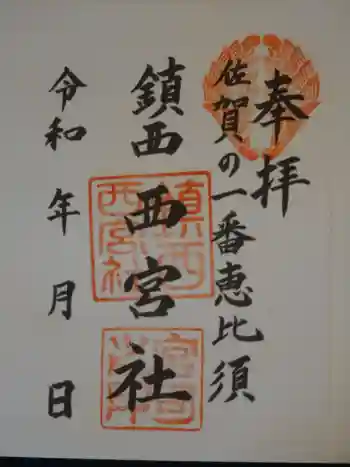 奉拝
佐賀の一番恵比須
鎮西西宮社
令和 年 月 日
鎮西
西宮社